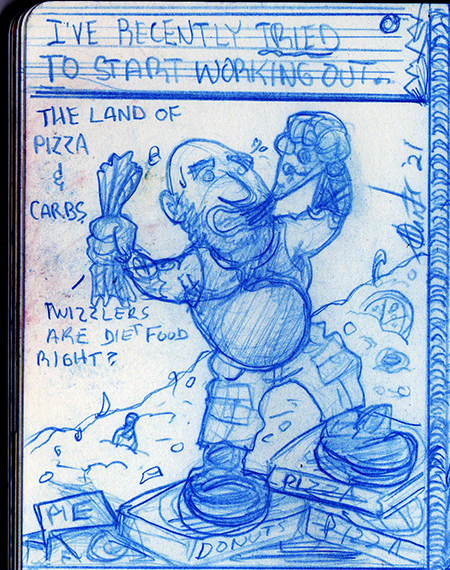 I'VE RECENTLY TRIED
TO START WORKING OUT..
THE LAND OF
PIZZA
&
CARBS
TWIZZLERS
ARE DIET FOOD
RIGHT?
21
PIZZA
DONUTS
PIZZA
ME